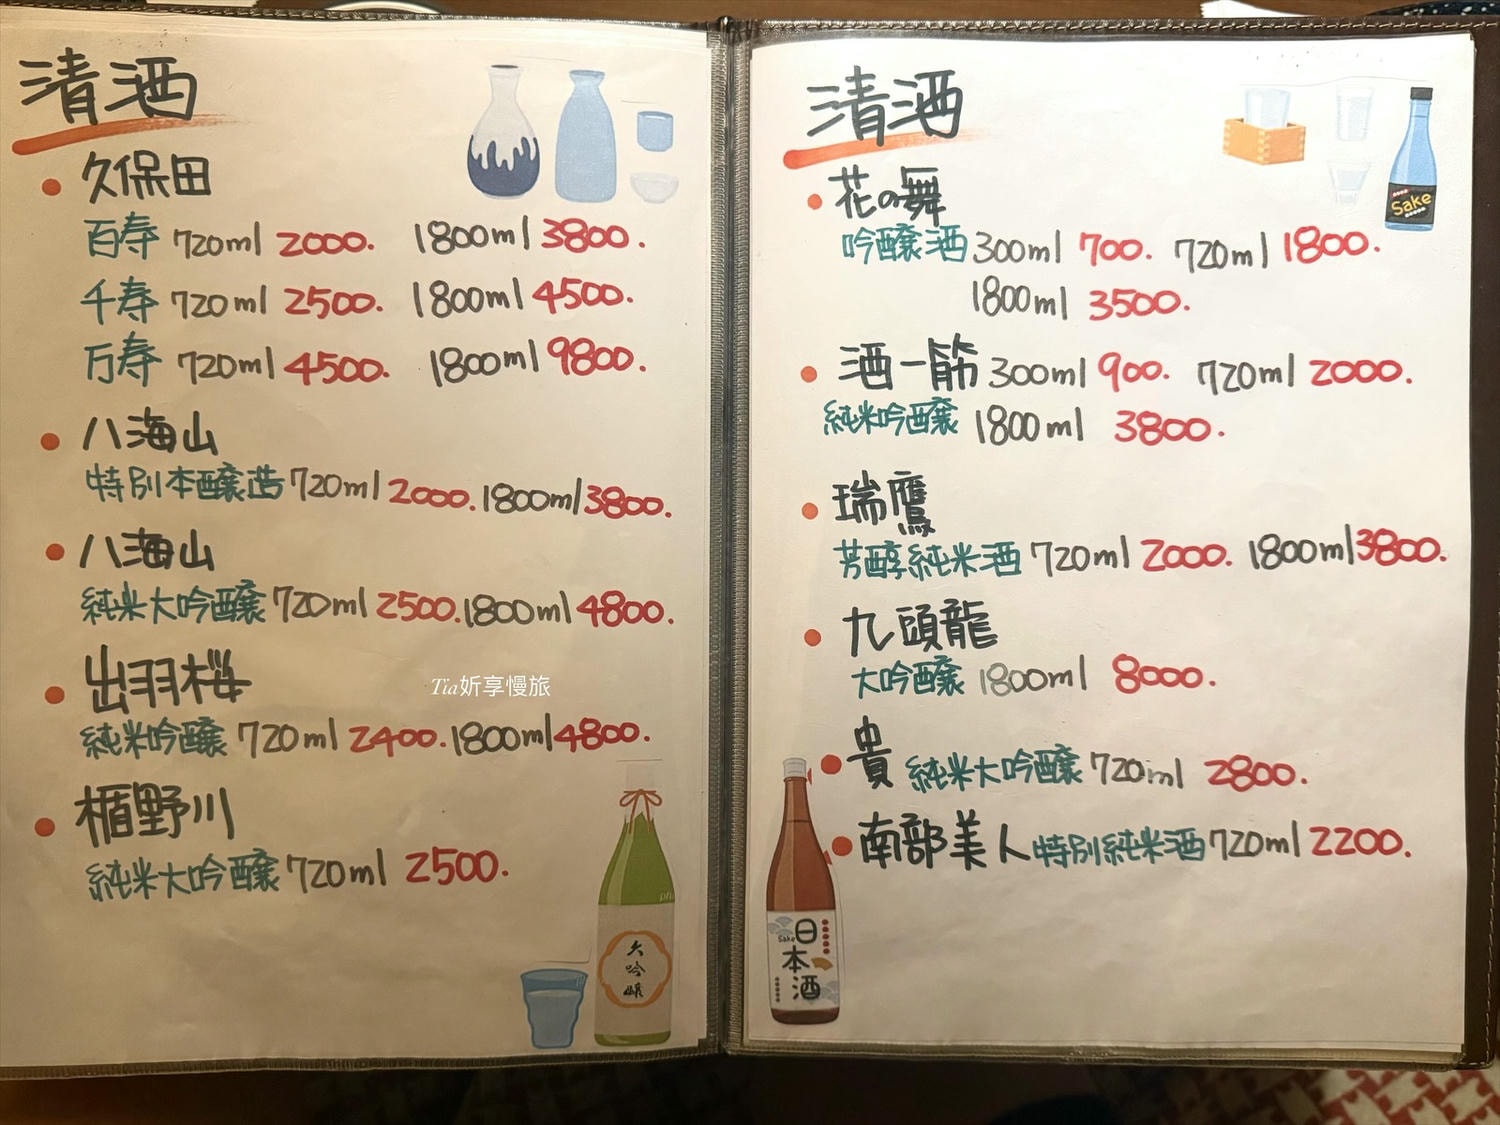 清酒
久保田
百寿 720ml 2000. 1800ml 3800.
千寿 720ml 2500. 1800ml 4500.
万寿 720ml 4500. 1800ml 9800.
八海山
特別本醸造 720ml 2000. 1800ml 3800.
八海山
純米大吟醸 720ml 2500. 1800ml 4800.
出羽桜
純米吟醸 720ml 2400. 1800ml 4800.
楯野川
純米大吟醸 720ml 2500.
Tia妡享慢旅
大
吟
醸
清酒
Sake
花の舞
吟醸酒 300ml 700. 720ml 1800.
1800ml 3500.
酒一筋 300ml 900. 720ml 2000.
純米吟醸 1800ml 3800.
瑞鷹
芳醇純米酒 720ml 2000. 1800ml 3800.
九頭龍
大吟醸 1800ml 8000.
貴 純米大吟醸 720ml 2800.
南部美人 特別純米酒 720ml 2200.
Sake
日本酒